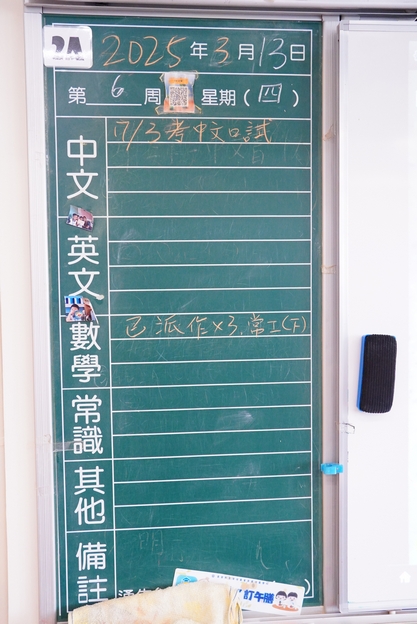 2A
2025年3月13日
第6周 星期(四)
中文
17/3考中文口試
英文
數學
已派作×3,常工(下)
常識
其他
備註
訂午膳